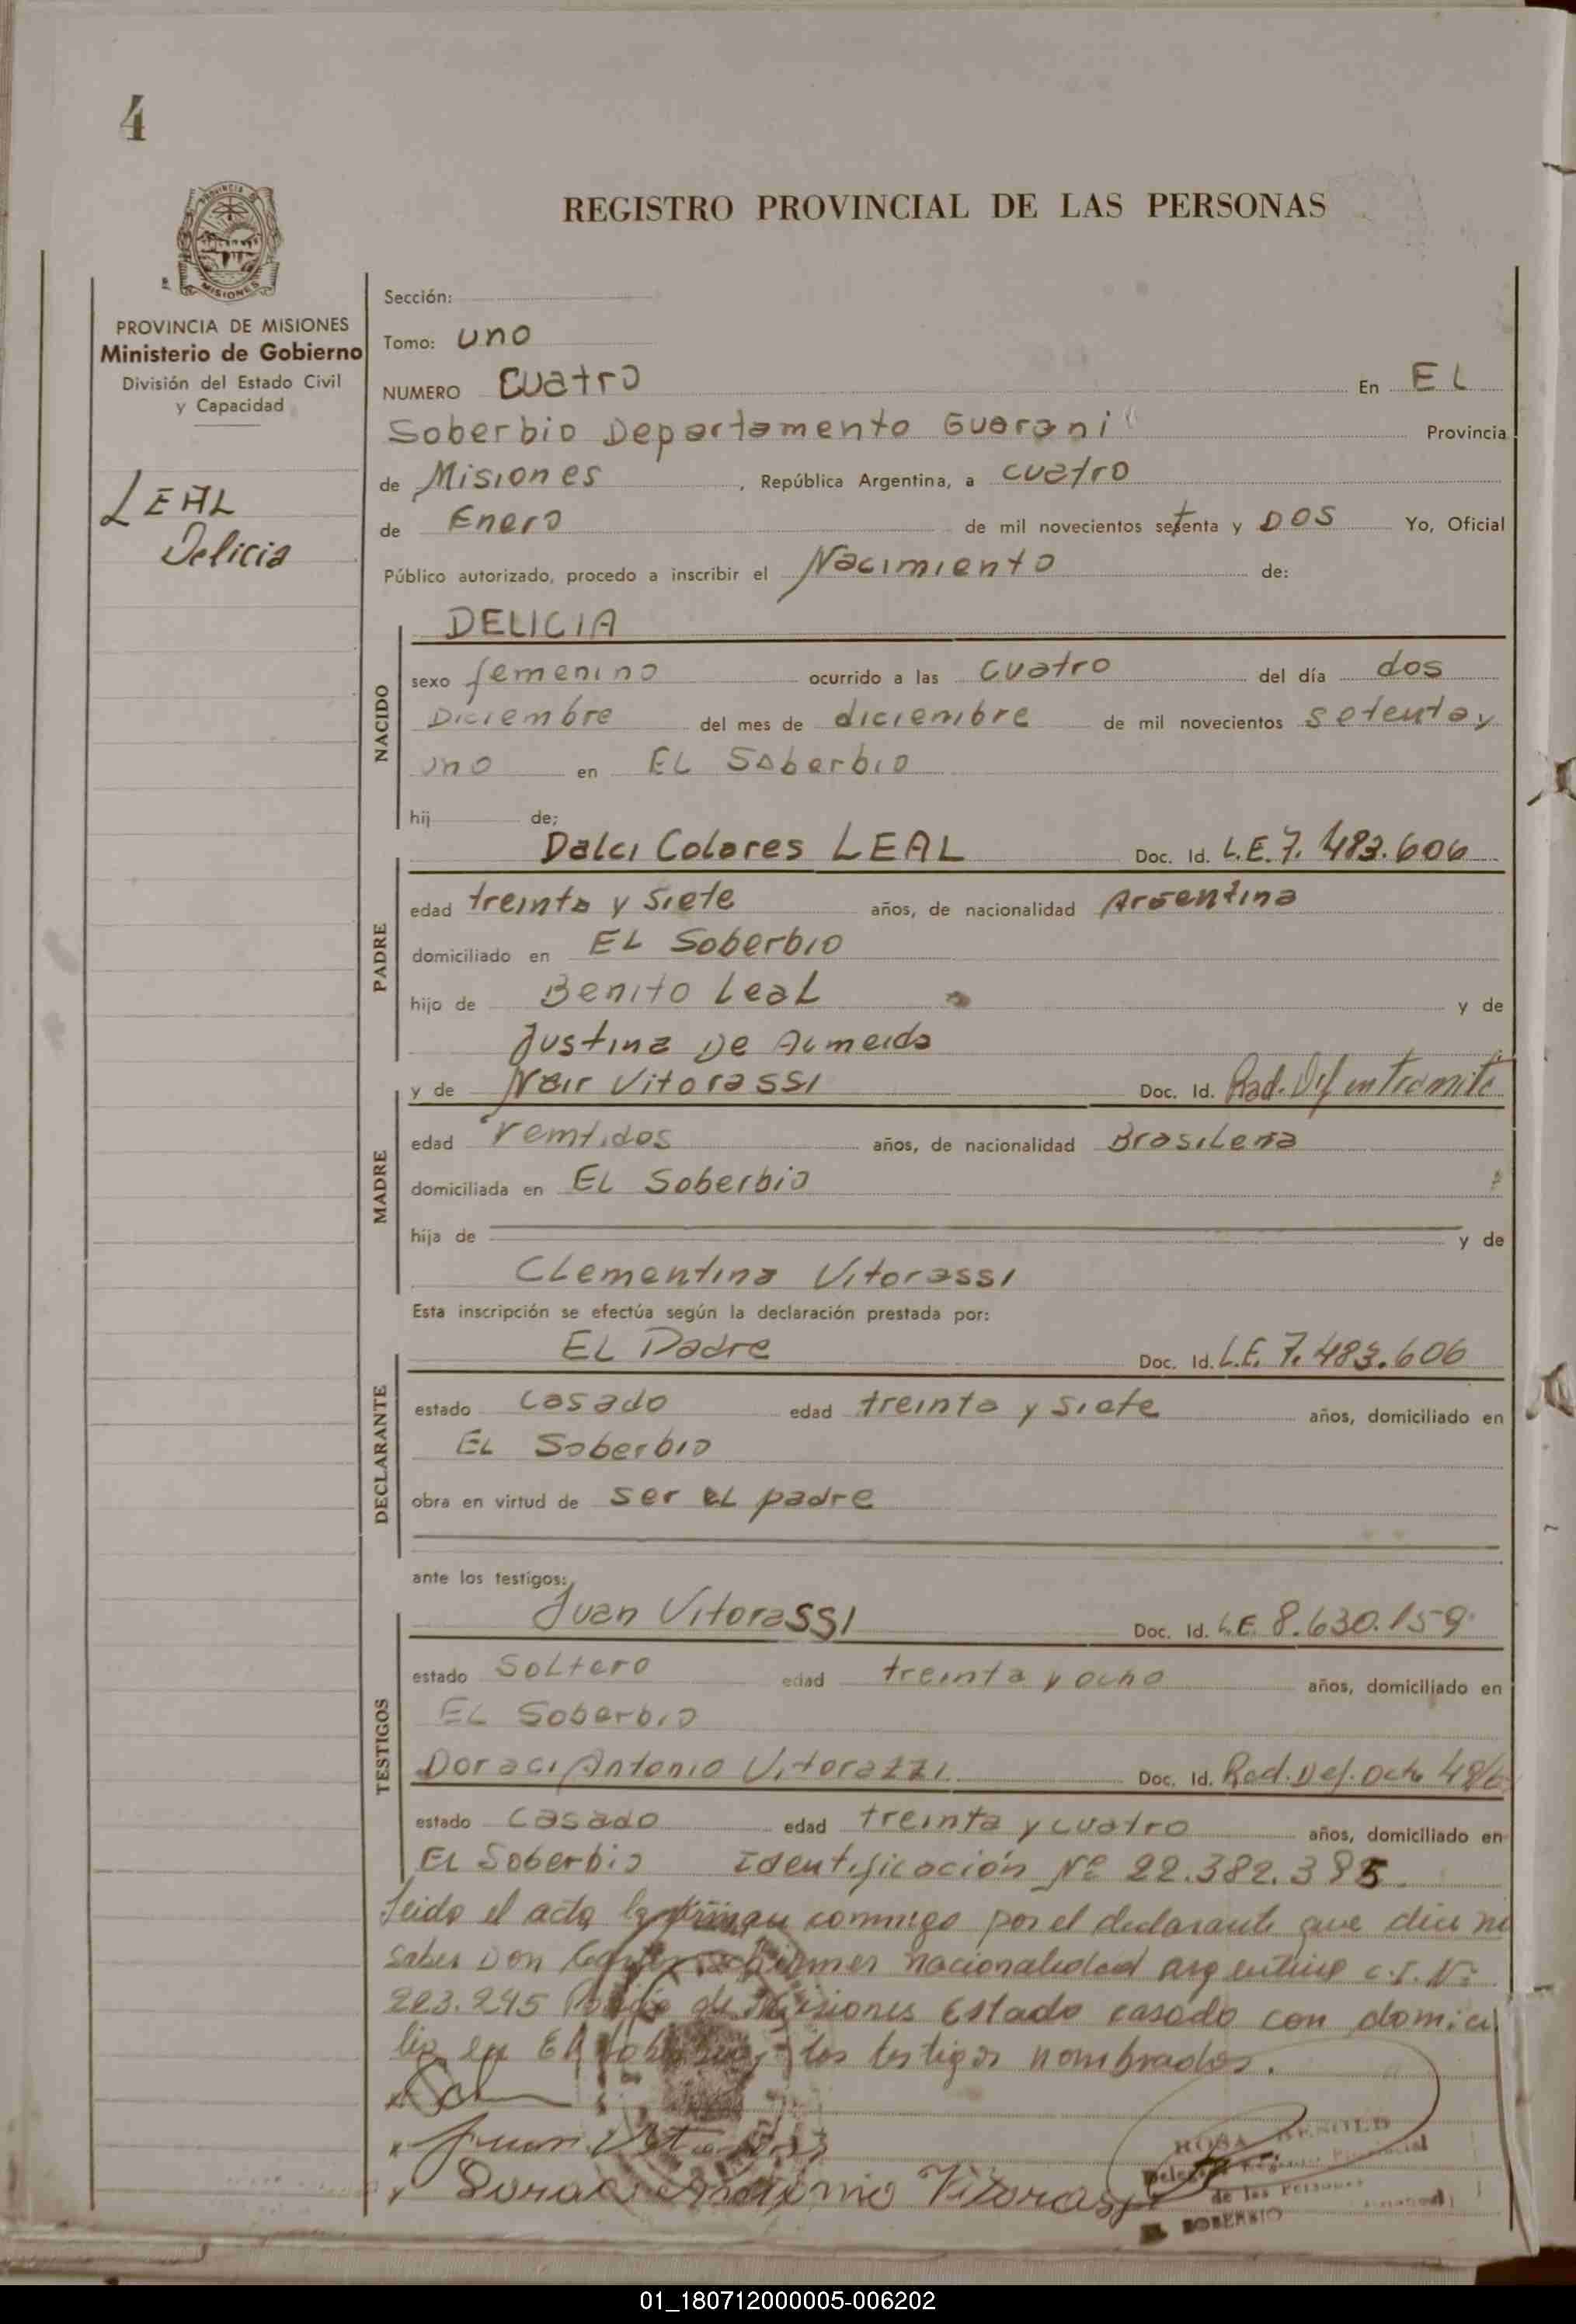 4
REGISTRO PROVINCIAL DE LAS PERSONAS
PROVINCIA DE MISIONES
Ministerio de Gobierno
División del Estado Civil
y Capacidad
LEAL
Delicia
Sección:
Tomo: uno
NUMERO Cuatro En EL
Soberbio Departamento Guarani Provincia
de Misiones, República Argentina, a cuatro
de Enero de mil novecientos setenta y DOS Yo, Oficial
Público autorizado, procedo a inscribir el Nacimiento de:
NACIDO
DELICIA
sexo femenino ocurrido a las cuatro del día dos
Diciembre del mes de diciembre de mil novecientos setenta y
uno en EL Soberbio
hij de;
PADRE
Dalci Colares LEAL Doc. Id. L.E. 7.483.606
edad treinta y siete años, de nacionalidad Argentina
domiciliado en EL Soberbio
hijo de Benito Leal y de
Justina De Almeida
MADRE
y de Nair Vitorassi Doc. Id. Rad. Def en tramite
edad Veintidos años, de nacionalidad Brasileña
domiciliada en EL Soberbio
hija de y de
Clementina Vitorassi
Esta inscripción se efectúa según la declaración prestada por:
DECLARANTE
EL Padre Doc. Id. L.E. 7.483.606
estado casado edad treinta y siete años, domiciliado en
EL Soberbio
obra en virtud de ser el padre
ante los testigos:
TESTIGOS
Juan Vitorassi Doc. Id. L.E. 8.630.159
estado Soltero edad treinta y ocho años, domiciliado en
EL Soberbio
Doraci Antonio Vitorazzi Doc. Id. Rad. Def. Octe
estado casado edad treinta y cuatro años, domiciliado en
EL Soberbio Identificación Nº 22.382.395.
Leida el acta la firman conmigo por el declarante que dice no
saber Don nacionalidad argentina C.I. Nº
223.245 Policia de Misiones Estado casado con domici
lio en El Soberbio y los testigos nombrados.
Juan
Doraci Antonio Vitorassi
ROSA BESOLD
de las Personas
EL SOBERBIO
01_180712000005-006202